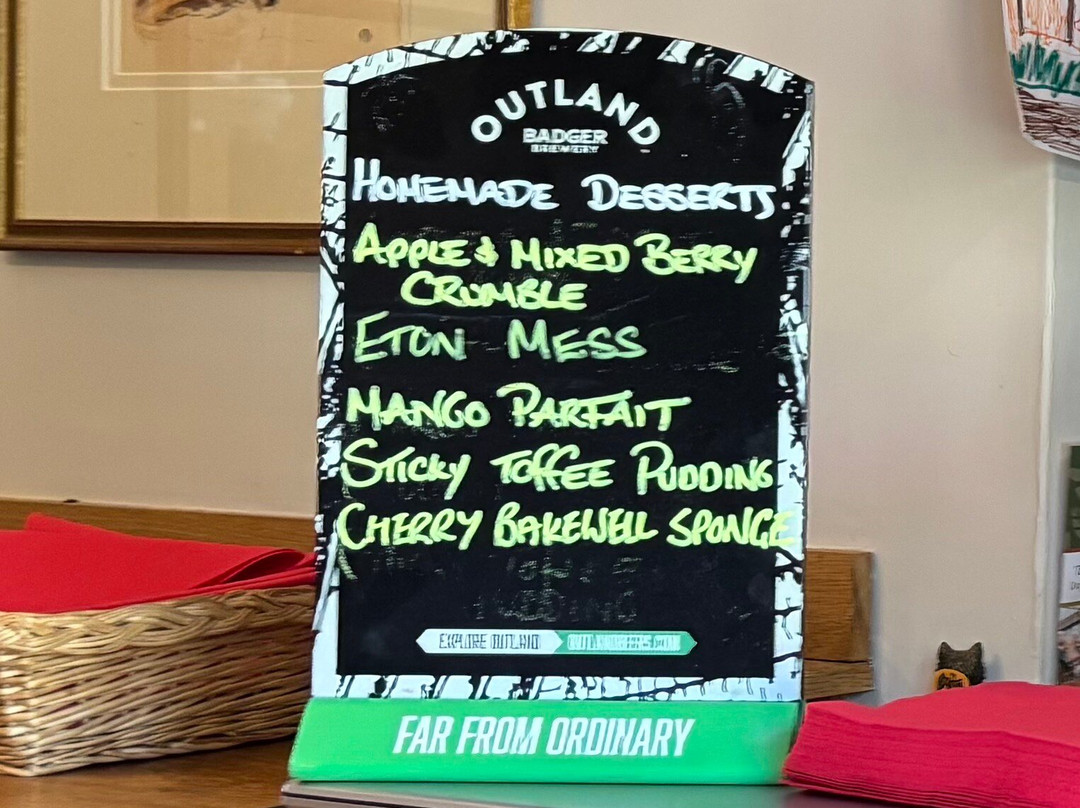 OUTLAND
BADGER
BREWERY
HOMEMADE DESSERTS
APPLE & MIXED BERRY
CRUMBLE
ETON MESS
MANGO PARFAIT
STICKY TOFFEE PUDDING
CHERRY BAKEWELL SPONGE
EXPLORE OUTLAND
FAR FROM ORDINARY